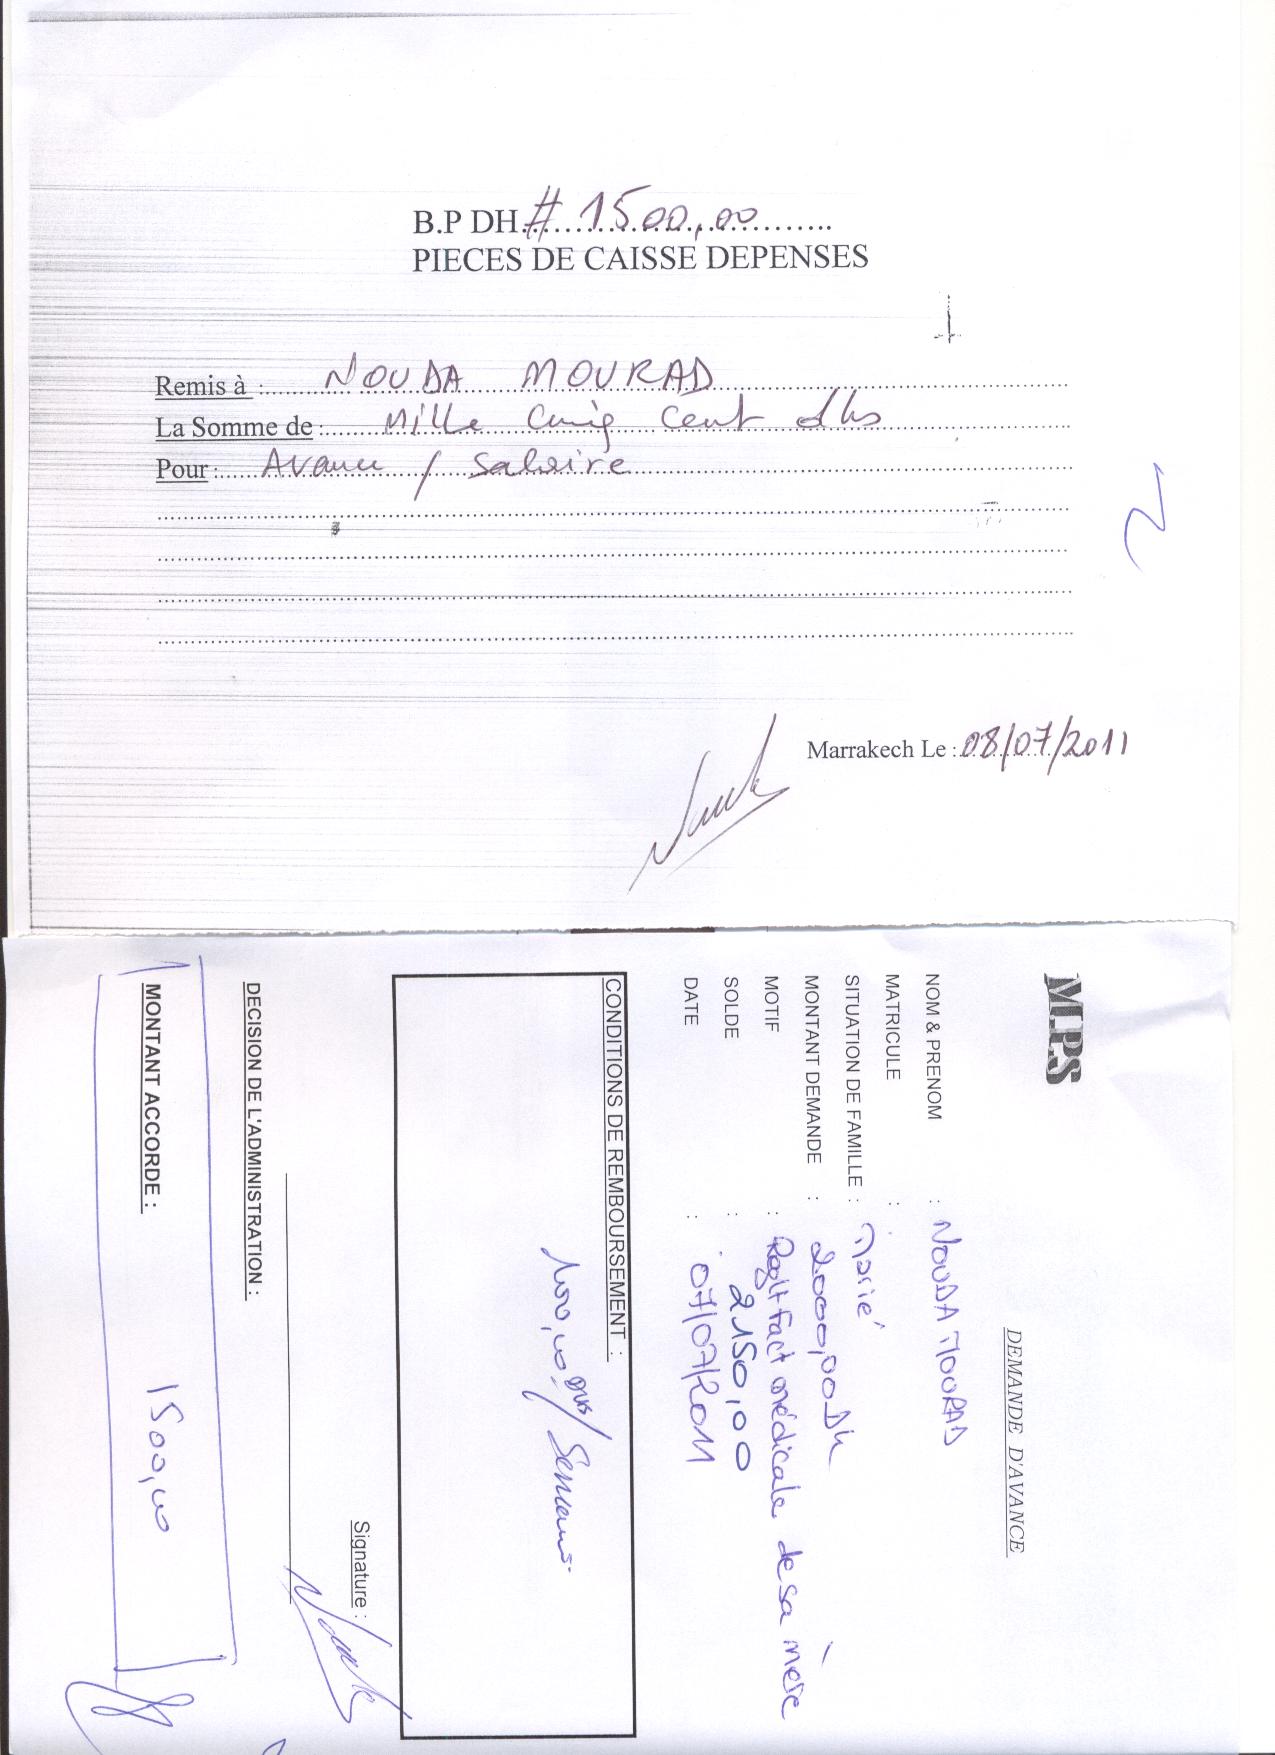 B.P DH # 1500,00
PIECES DE CAISSE DEPENSES
Remis à : NOUDA MOURAD
La Somme de : Mille Cinq Cent dhs
Pour : Avance / Salaire
Marrakech Le : 08/07/2011
M.P.S
DEMANDE D'AVANCE
NOM & PRENOM : NOUDA MOURAD
MATRICULE :
SITUATION DE FAMILLE : Marié
MONTANT DEMANDE : 2000,00 Dh
MOTIF : Reglt fact médicale de sa mère
SOLDE : 2150,00
DATE : 07/07/2011
CONDITIONS DE REMBOURSEMENT :
100,00 DHS / Semaine
Signature :
DECISION DE L'ADMINISTRATION :
MONTANT ACCORDE : 1500,00